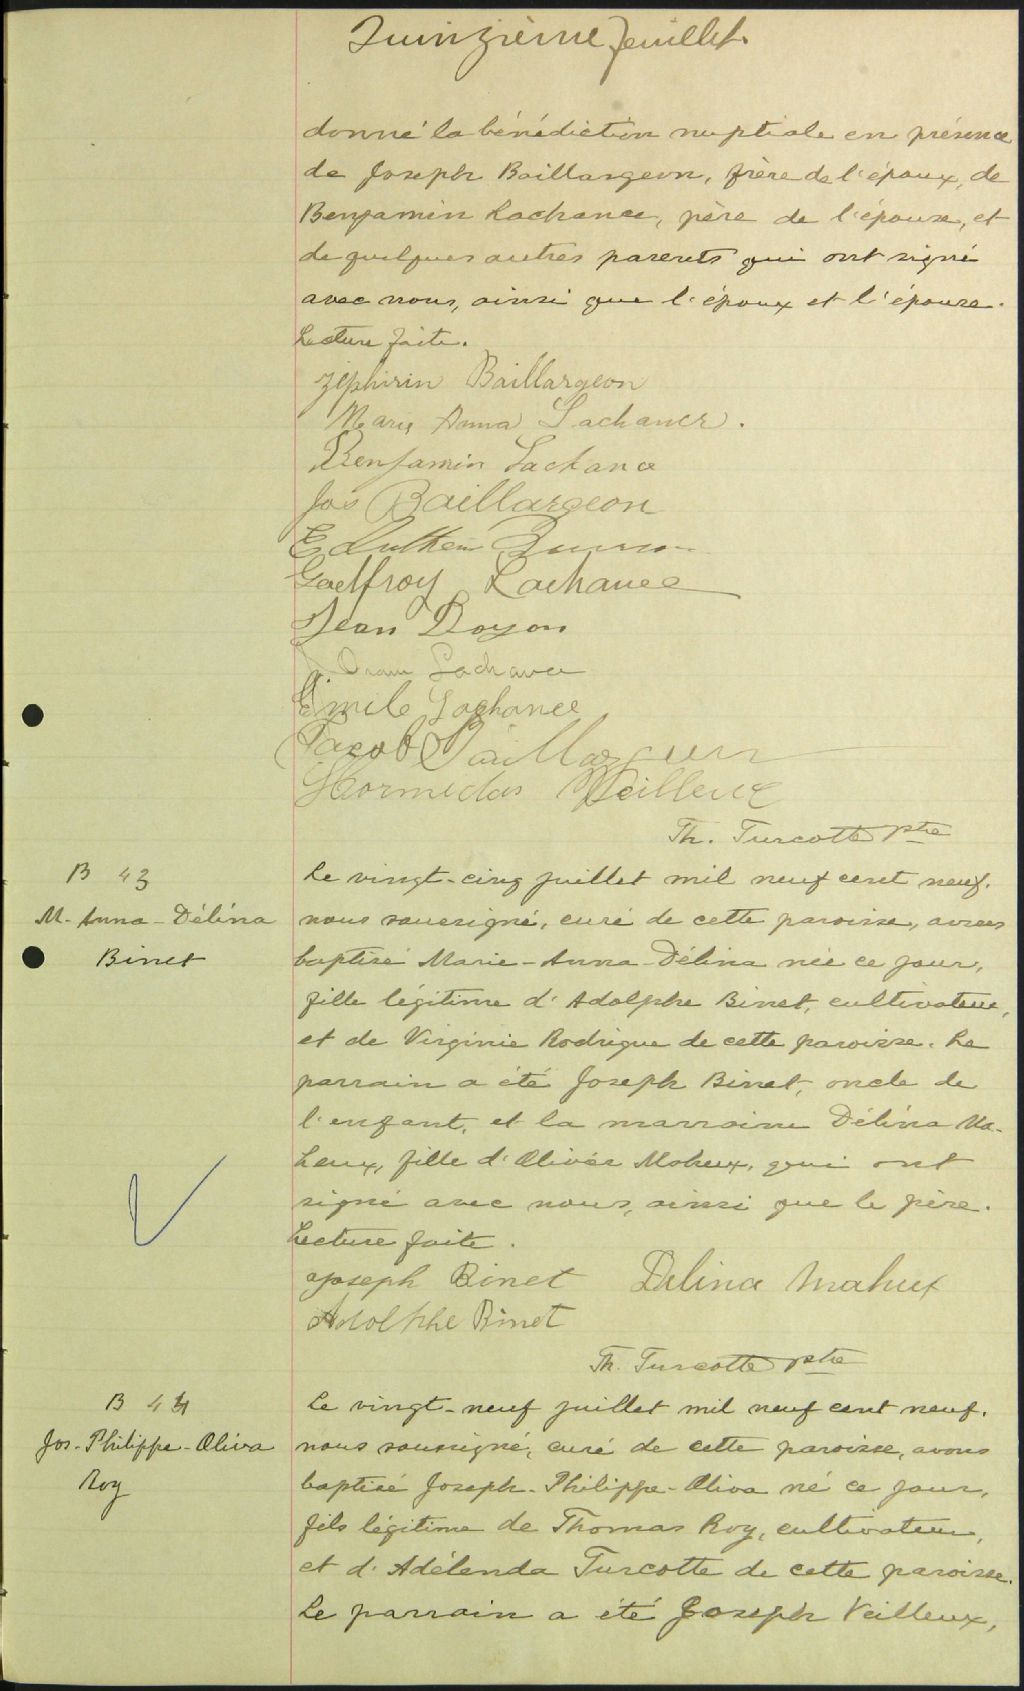 Quinzième feuillet.
donné la bénédiction nuptiale en présence
de Joseph Baillargeon, frère de l'époux, de
Benjamin Lachance, père de l'épouse, et
de quelques autres parents qui ont signé
avec nous, ainsi que l'époux et l'épouse.
Lecture faite.
Zéphirin Baillargeon
Marie Anna Lachance.
Benjamin Lachance
Jos Baillargeon
Godfroy Lachance
Jean Doyon
Lachance
Emile Lachance
Jacob Baillargeon
Hormidas Veilleux
Th. Turcotte ptre
B 43
M-Anna-Délina
Binet
Le vingt-cinq juillet mil neuf cent neuf.
nous soussigné, curé de cette paroisse, avons
baptisé Marie-Anna-Délina née ce jour,
fille légitime d'Adolphe Binet, cultivateur,
et de Virginie Rodrigue de cette paroisse. Le
parrain a été Joseph Binet, oncle de
l'enfant, et la marraine Délina Ma-
heux, fille d'Olivier Maheux, qui ont
signé avec nous, ainsi que le père.
Lecture faite.
Joseph Binet Delina Maheux
Adolphe Binet
Th. Turcotte ptre
B 44
Jos-Philippe-Oliva
Roy
Le vingt-neuf juillet mil neuf cent neuf.
nous soussigné, curé de cette paroisse, avons
baptisé Joseph-Philippe-Oliva né ce jour,
fils légitime de Thomas Roy, cultivateur,
et d'Adélenda Turcotte de cette paroisse.
Le parrain a été Joseph Veilleux,